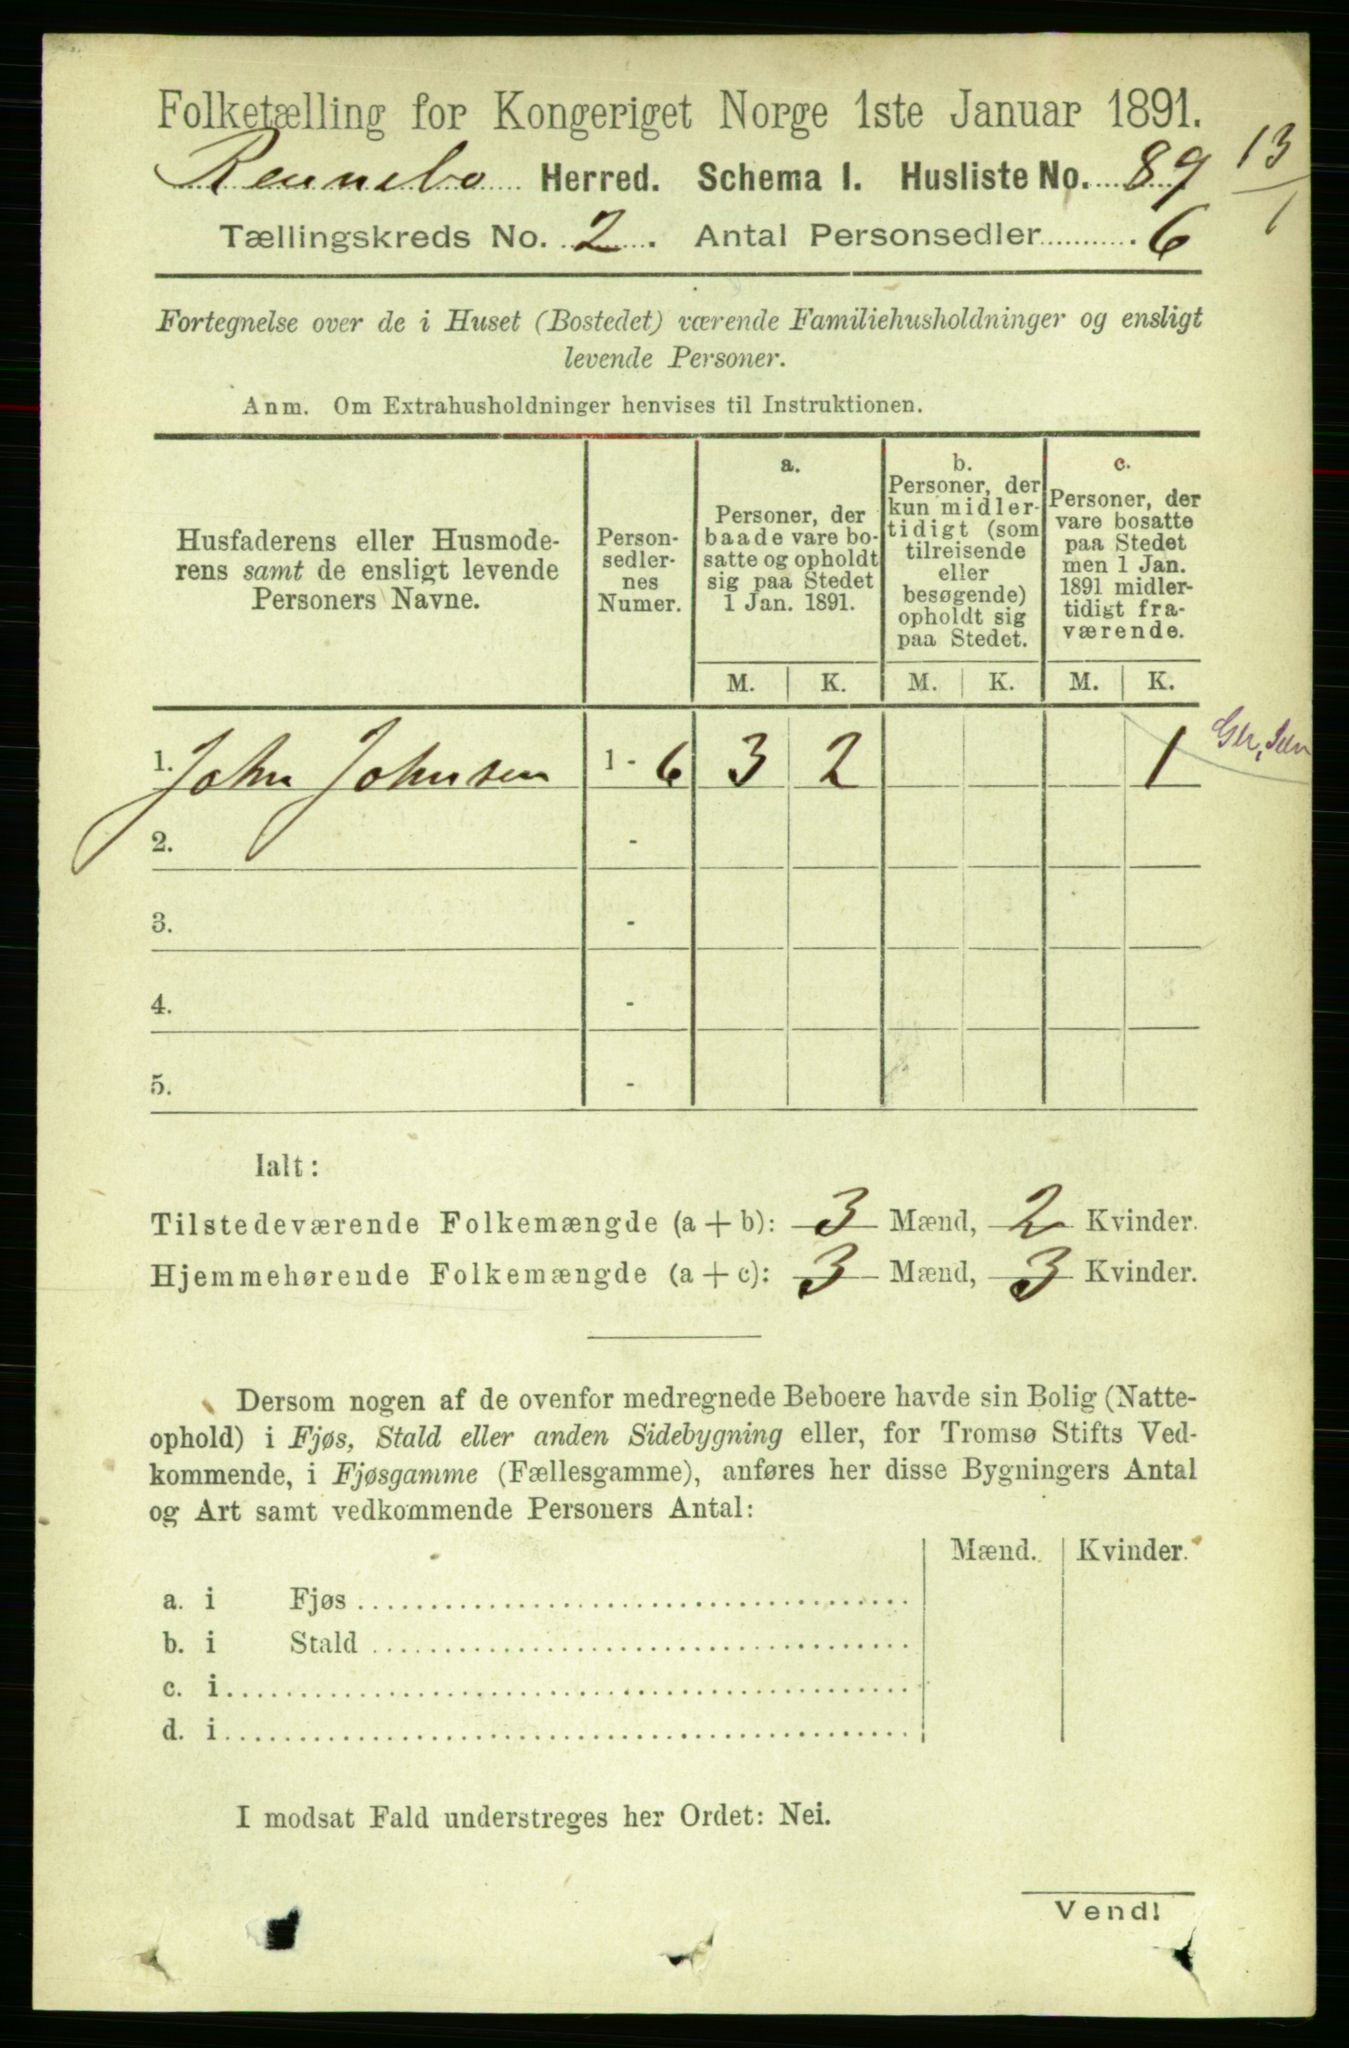 Folketælling for Kongeriget Norge 1ste Januar 1891.
Rennebo Herred. Schema I. Husliste No. 89
13
1
Tællingskreds No. 2. Antal Personsedler 6
Fortegnelse over de i Huset (Bostedet) værende Familiehusholdninger og ensligt
levende Personer.
Anm. Om Extrahusholdninger henvises til Instruktionen.
Husfaderens eller Husmode-
rens samt de ensligt levende
Personers Navne.
Person-
sedler-
nes
Numer.
a.
Personer, der
baade vare bo-
satte og opholdt
sig paa Stedet
1 Jan. 1891.
b.
Personer, der
kun midler-
tidigt (som
tilreisende
eller
besøgende)
opholdt sig
paa Stedet.
c.
Personer, der
vare bosatte
paa Stedet
men 1 Jan.
1891 midler-
tidigt fra-
værende.
M. K. M. K. M. K.
1. John Johnsen 1 - 6 3 2 1
2. -
3. -
4. -
5. -
Ialt:
Tilstedeværende Folkemængde (a + b): 3 Mænd, 2 Kvinder.
Hjemmehørende Folkemængde (a + c): 3 Mænd, 3 Kvinder.
Dersom nogen af de ovenfor medregnede Beboere havde sin Bolig (Natte-
ophold) i Fjøs, Stald eller anden Sidebygning eller, for Tromsø Stifts Ved-
kommende, i Fjøsgamme (Fællesgamme), anføres her disse Bygningers Antal
og Art samt vedkommende Personers Antal:
Mænd. Kvinder.
a. i Fjøs
b. i Stald
c. i
d. i
I modsat Fald understreges her Ordet: Nei.
Vend!